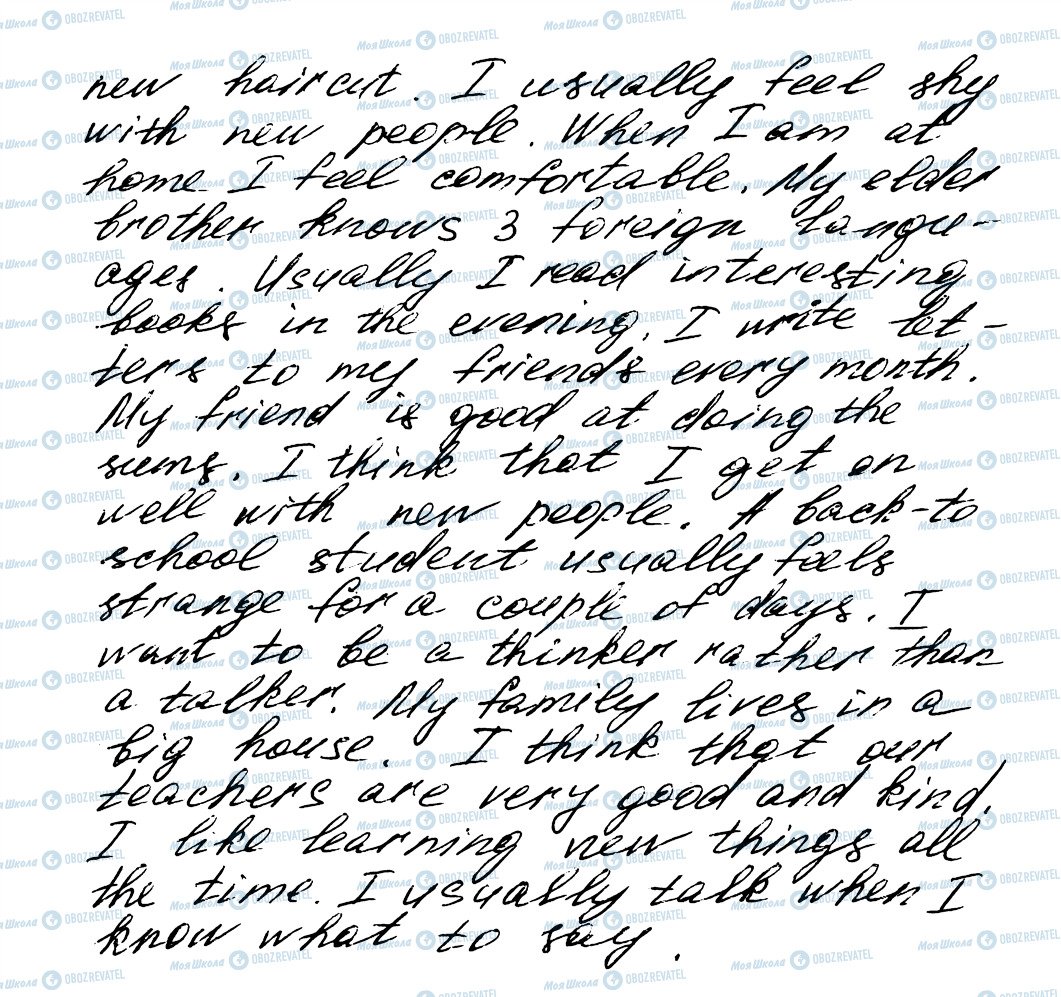 new haircut. I usually feel shy
with new people. When I am at
home I feel comfortable. My elder
brother knows 3 foreign langu-
ages. Usually I read interesting
books in the evening. I write let-
ters to my friends every month.
My friend is good at doing the
sums. I think that I get on
well with new people. A back-to
school student usually feels
strange for a couple of days. I
want to be a thinker rather than
a talker. My family lives in a
big house. I think that our
teachers are very good and kind.
I like learning new things all
the time. I usually talk when I
know what to say.